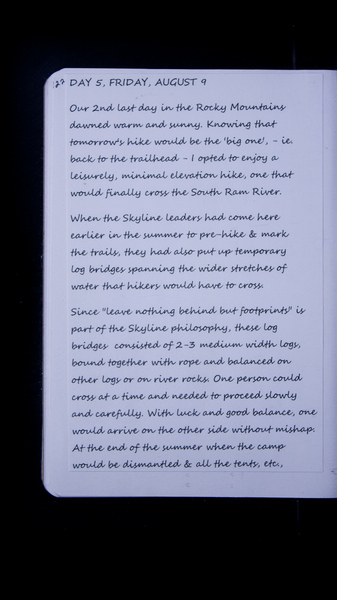 DAY 5, FRIDAY, AUGUST 9
Our 2nd last day in the Rocky Mountains
dawned warm and sunny. Knowing that
tomorrow's hike would be the 'big one', - ie.
back to the trailhead - I opted to enjoy a
leisurely, minimal elevation hike, one that
would finally cross the South Ram River.
When the Skyline leaders had come here
earlier in the summer to pre-hike & mark
the trails, they had also put up temporary
log bridges spanning the wider stretches of
water that hikers would have to cross.
Since "leave nothing behind but footprints" is
part of the Skyline philosophy, these log
bridges consisted of 2-3 medium width logs,
bound together with rope and balanced on
other logs or on river rocks. One person could
cross at a time and needed to proceed slowly
and carefully. With luck and good balance, one
would arrive on the other side without mishap.
At the end of the summer when the camp
would be dismantled & all the tents, etc.,